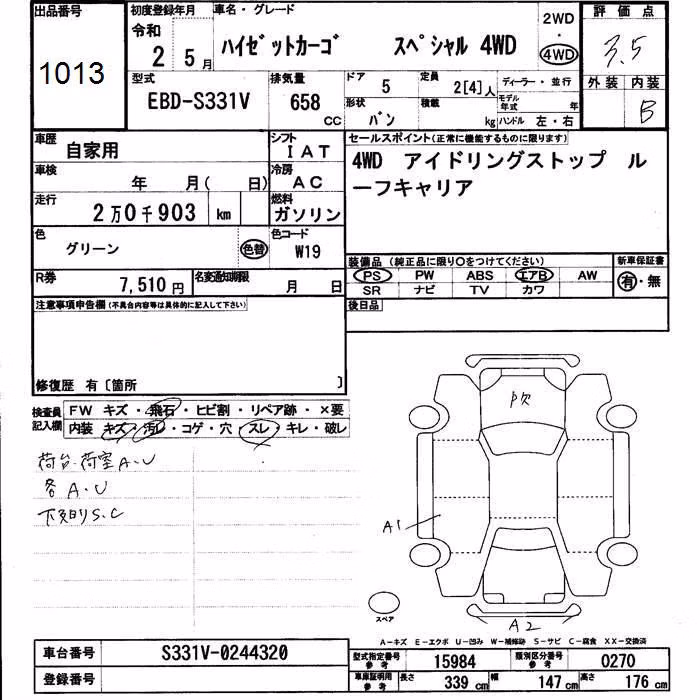 出品番号
1013
初度登録年月
令和
2 5月
車名・グレード
ハイゼットカーゴ スペシャル 4WD
2WD
・
4WD
評価点
3.5
外装 内装
B
型式
EBD-S331V
排気量
658
CC
ドア
5
定員
2[4]人
ディーラー・並行
形状
バン
積載
kg
モデル年式
年
ハンドル 左・右
車歴
自家用
シフト
IAT
車検
年 月( 日)
冷房
AC
走行
2万0千903 km
燃料
ガソリン
色
グリーン
色替
色コード
W19
R券
7,510円
名変通知期限
月 日
セールスポイント(正常に機能するものに限ります)
4WD アイドリングストップ ル
ーフキャリア
装備品(純正品に限り○をつけてください)
新車保証書
PS PW ABS エアB AW
有・無
SR ナビ TV カワ
後日品
注意事項申告欄(不具合内容等は具体的に記入して下さい)
修復歴 有〔箇所 〕
検査員記入欄
FW キズ・飛石・ヒビ割・リペア跡・×要
内装 キズ・汚レ・コゲ・穴・スレ・キレ・破レ
荷台・荷室A・U
各A・U
下廻りS.C
A1
A2
スペア
A-キズ E-エクボ U-凹み W-補修跡 S-サビ C-腐食 XX-交換済
車台番号
S331V-0244320
登録番号
型式指定番号
参考
15984
類別区分番号
参考
0270
車庫証明用
参考
長さ
339 cm
幅
147 cm
高さ
176 cm